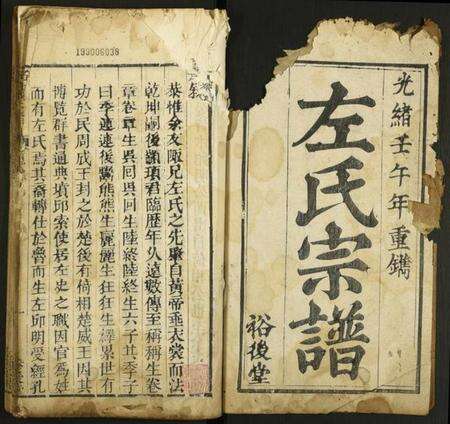 光緒壬午年重鐫
左氏宗譜
裕後堂
193006038
恭惟余友陬兄左氏之先肇自黃帝垂衣裳而法
乾坤嗣後顓頊君臨歷年久遠數傳至稱稱生卷
章卷章生吳回吳回生陸終陸終生六子其季子
曰季連連後鬻熊熊生麗麗生狂狂生繹累世有
功於民周成王封之於楚後有倚相楚威王因其
博覽群書通典墳邱索使居左史之職因官為姓
而有左氏焉其裔轉仕於魯而生左邱明受經孔